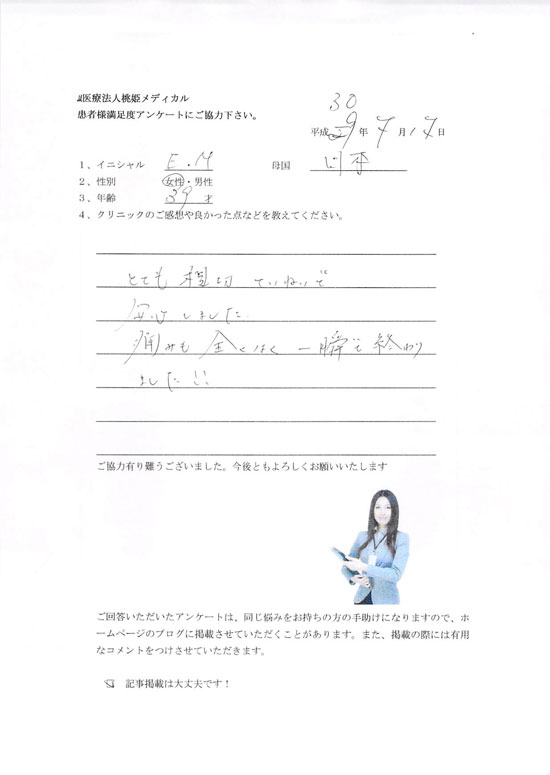 医療法人桃姫メディカル
患者様満足度アンケートにご協力下さい。
30
平成29年7月17日
1、イニシャル E.M 母国 日本
2、性別 女性・男性
3、年齢 39 才
4、クリニックのご感想や良かった点などを教えてください。
とても親切 ていねいで
安心しました
痛みも全くなく 一瞬で終わり
ました!!
ご協力有り難うございました。今後ともよろしくお願いいたします
ご回答いただいたアンケートは、同じ悩みをお持ちの方の手助けになりますので、ホ
ームページのブログに掲載させていただくことがあります。また、掲載の際には有用
なコメントをつけさせていただきます。
記事掲載は大丈夫です!